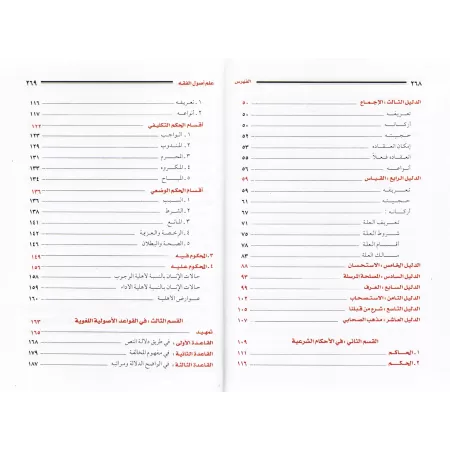 ٢٦٨ الفهرس
الدليل الثالث : الإجماع ٥٠
تعريفه ٥٠
أركانه ٥٠
حجيته ٥٩
إمكان انعقاده ٥٣
انعقاده فعلاً ٥٥
أنواعه ٥٦
الدليل الرابع : القياس ٥٩
تعريفه ٥٩
حجيته ٥٩
أركانه ٦٧
تعريف العلة ٦٨
شروط العلة ٧٠
أقسام العلة ٧٨
مسالك العلة ٨٣
الدليل الخامس : الاستحسان ٨٨
الدليل السادس : المصلحة المرسلة ٩٣
الدليل السابع : العرف ٩٩
الدليل الثامن : الاستصحاب ١٠٢
الدليل التاسع : شرع من قبلنا ١٠٥
الدليل العاشر : مذهب الصحابي ١٠٧
القسم الثاني : في الأحكام الشرعية ١٠٩
١ـ الحاكم ١١١
٢ـ الحكم ١١٦
علم أصول الفقه ٢٦٩
١ـ تعريفه ١١٦
٢ـ أنواعه ١١٧
أقسام الحكم التكليفي ١٢٢
١ـ الواجب ١٢٣
٢ـ المندوب ١٢٩
٣ـ المحرم ١٣١
٤ـ المكروه ١٣٣
٥ـ المباح ١٣٤
أقسام الحكم الوضعي ١٣٦
١ـ السبب ١٣٦
٢ـ الشرط ١٣٨
٣ـ المانع ١٤١
٤ـ الرخصة والعزيمة ١٤١
٥ـ الصحة والبطلان ١٤٦
٣ـ المحكوم فيه ١٤٩
٤ـ المحكوم عليه ١٥٦
حالات الإنسان بالنسبة لأهلية الوجوب ١٥٨
حالات الإنسان بالنسبة لأهلية الأداء ١٥٩
عوارض الأهلية ١٦٠
القسم الثالث : في القواعد الأصولية اللغوية ١٦٣
تمهيد ١٦٥
القاعدة الأولى : في طريق دلالة النص ١٦٨
القاعدة الثانية : في مفهوم المخالفة ١٧٩
القاعدة الثالثة : في الواضح الدلالة ومراتبه ١٨٧